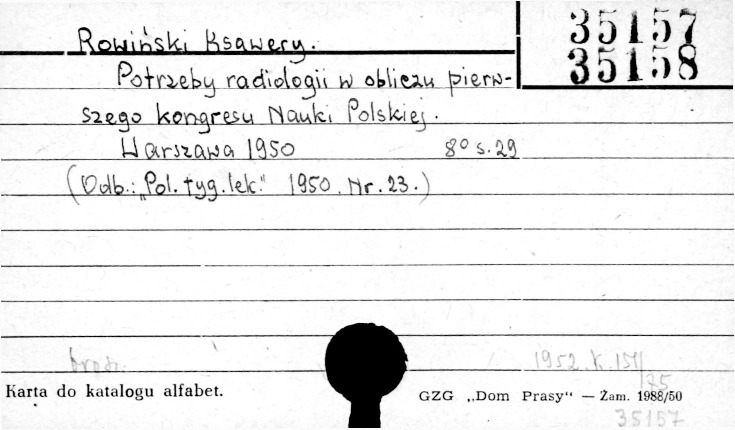 35157
35158
Rowiński Ksawery.
Potrzeby radiologii w obliczu pierw-
szego kongresu Nauki Polskiej.
Warszawa 1950 8° s. 29
(Odb.: „Pol. tyg. lek." 1950. Nr. 23.)
1952. K. 151/
Karta do katalogu alfabet.
GZG „Dom Prasy" — Zam. 1988/50
35157